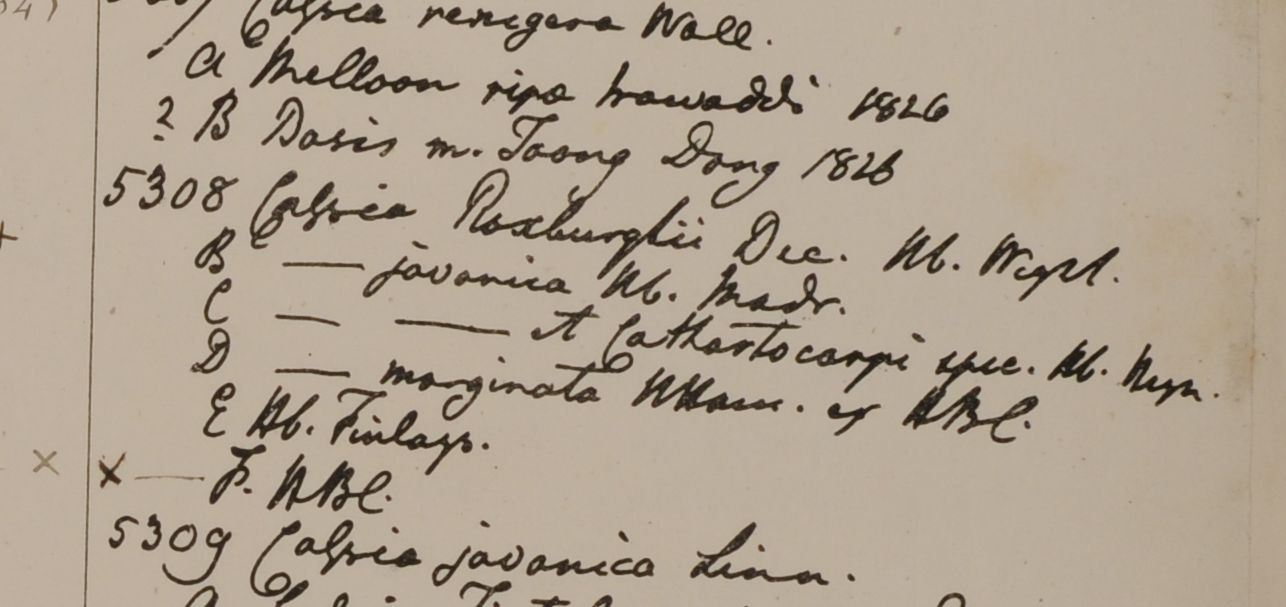 Cassia renigera Wall.
a Melloon ripa Irawaddi 1826
? B Dasis m. Toong Dong 1826
5308 Cassia Roxburghii Dec. Hb. Wight.
B — javanica Hb. Madr.
C — — et Cathartocarpi spec. Hb. Heyn.
D — marginata HHam. ex HBC.
E Hb. Finlays.
x — F. HBC.
5309 Cassia javanica Linn.